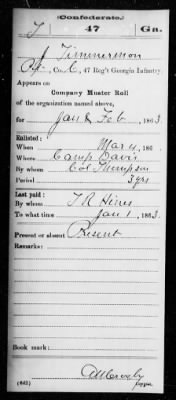 (Confederate.)
T 47 Ga.
J Timmerman
Co. C, 47 Reg't Georgia Infantry.
Appears on
Company Muster Roll
of the organization named above,
for Jan & Feb, 1863
Enlisted:
When Mar 4, 186
Where Camp Davis
By whom Col Thompson
Period 3 yrs
Last paid:
By whom T R Hines
To what time Jan 1, 1863
Present or absent Present
Remarks:
Book mark:
(642) Copyist.